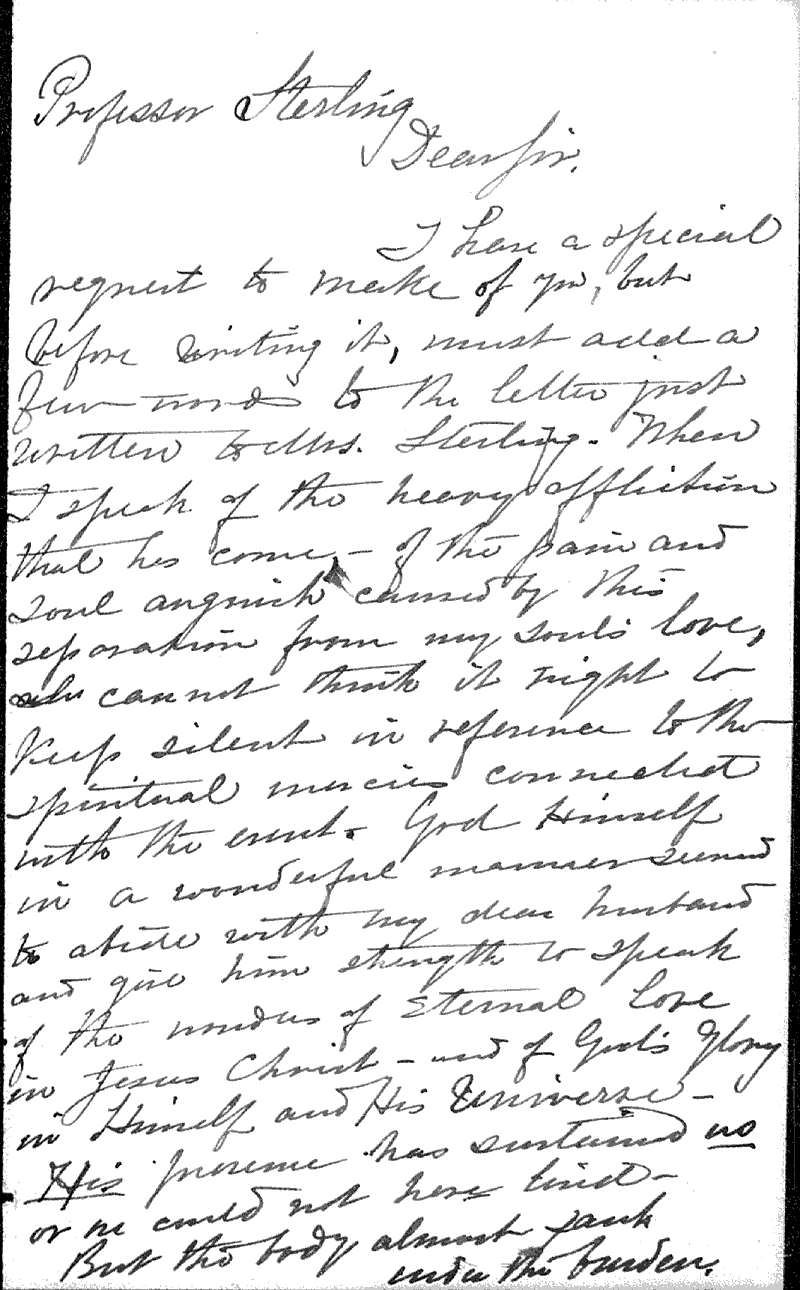 Professor Sterling
Dear Sir.
I have a special
request to make of you, but
before writing it, must add a
few words to the letter just
written to Mrs. Sterling. When
I speak of the heavy affliction
that has come, - of the pain and
soul anguish caused by this
separation from my soul's love,
cannot think it right to
keep silent in reference to the
spiritual mercies connected
with the event. God Himself
in a wonderful manner seemed
to abide with my dear husband
and give him strength to speak
of the wonders of Eternal Love
in Jesus Christ - and of God's Glory
in Himself and His Universe -
His presence has sustained us
or we could not have lived -
But the body almost sank
under the burden.